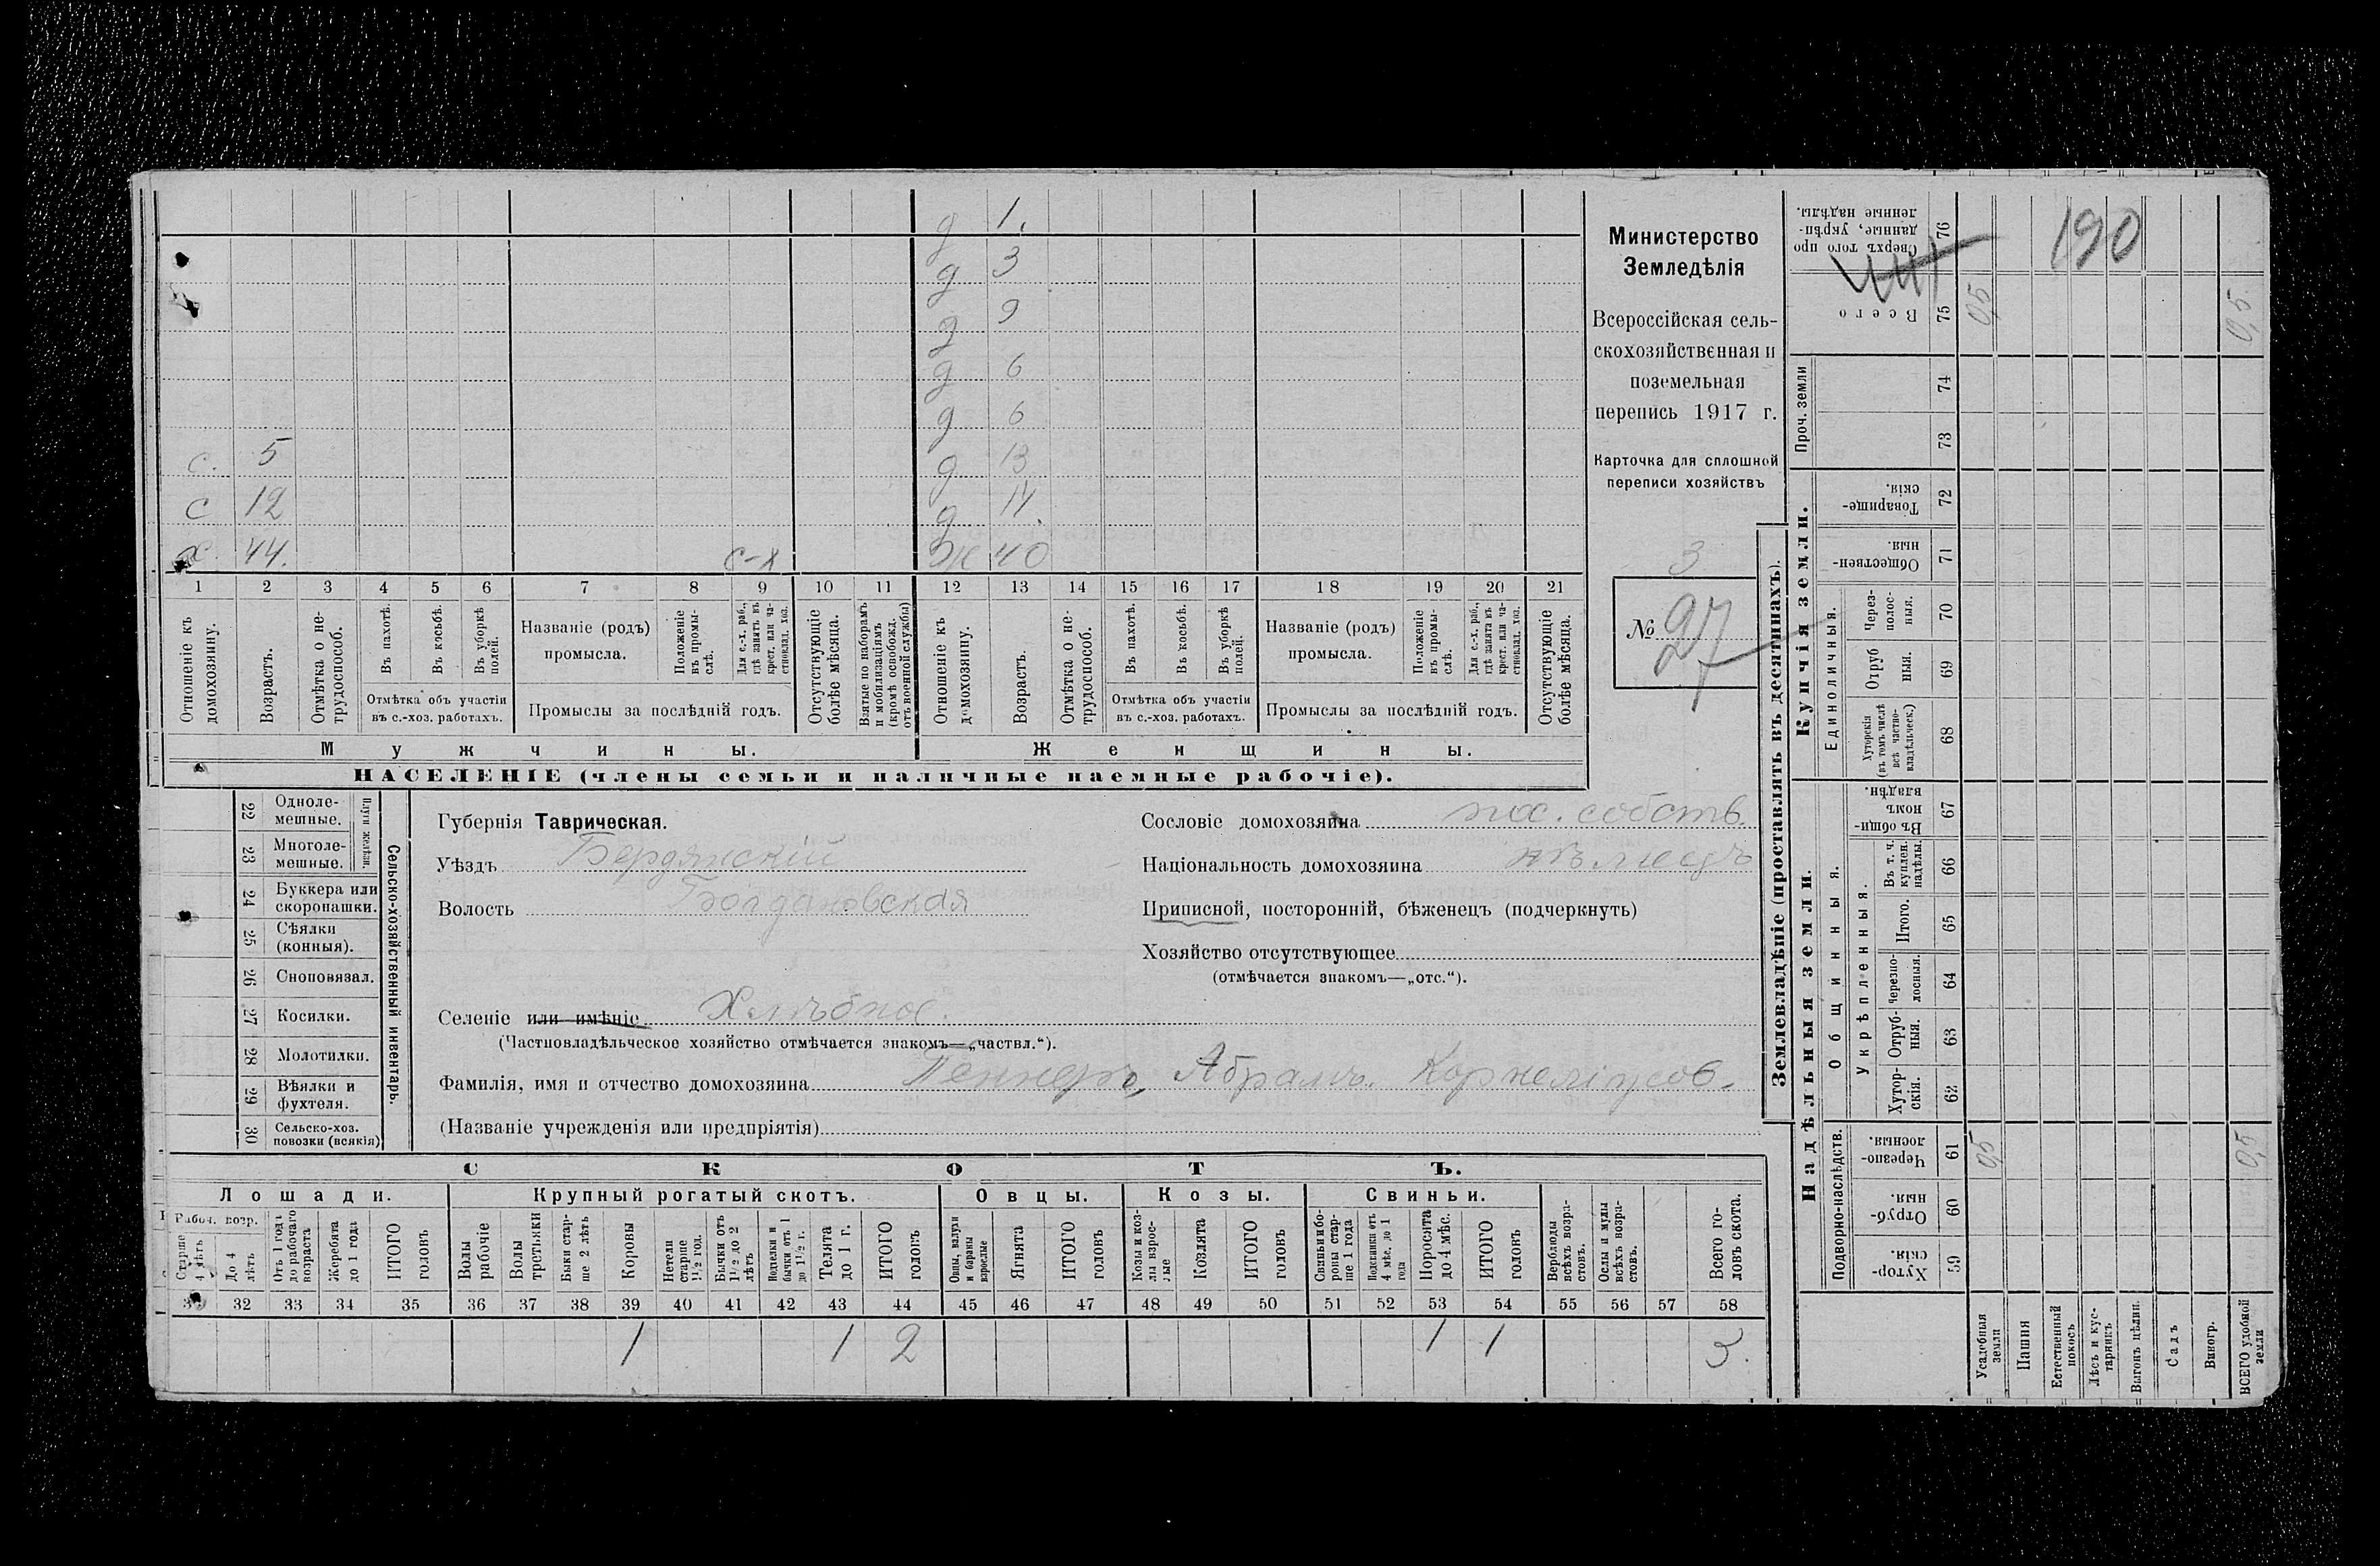 д 1.
д 3
д 9
д 6
д 6
с. 5 д 13
с 12 д 11.
х. 44. с-х ж 40
1 2 3 4 5 6 7 8 9 10 11 12 13 14 15 16 17 18 19 20 21
Отношеніе къ домохозяину.
Возрастъ.
Отмѣтка о нетрудоспособ.
Въ пахотѣ.
Въ косьбѣ.
Въ уборкѣ полей.
Отмѣтка объ участіи
въ с.-хоз. работахъ.
Названіе (родъ)
промысла.
Положеніе въ промыслѣ.
Для с.-х. раб., гдѣ занятъ въ крест. или частновлад. хоз.
Промыслы за послѣдній годъ.
Отсутствующіе болѣе мѣсяца.
Взятые по наборамъ и мобилизаціямъ (кромѣ освобожд. отъ военной службы)
Отношеніе къ домохозяину.
Возрастъ.
Отмѣтка о нетрудоспособ.
Въ пахотѣ.
Въ косьбѣ.
Въ уборкѣ полей.
Отмѣтка объ участіи
въ с.-хоз. работахъ.
Названіе (родъ)
промысла.
Положеніе въ промыслѣ.
Для с.-х. раб., гдѣ занята въ крест. или частновлад. хоз.
Промыслы за послѣдній годъ.
Отсутствующіе болѣе мѣсяца.
Мужчины.
Женщины.
НАСЕЛЕНІЕ (члены семьи и наличные наемные рабочіе).
Министерство
Земледѣлія
Всероссійская сель-
скохозяйственная и
поземельная
перепись 1917 г.
Карточка для сплошной
переписи хозяйствъ
3
№ 27
22 Одноле-
мешные.
23 Многоле-
мешные.
Плуги желѣзн.
24 Буккера или
скоропашки.
25 Сѣялки
(конныя).
26 Сноповязал.
27 Косилки.
28 Молотилки.
29 Вѣялки и
фухтеля.
30 Сельско-хоз.
повозки (всякія)
Сельско-хозяйственный инвентарь.
Губернія Таврическая.
Уѣздъ Бердянскій
Волость Богдановская
Селеніе или имѣніе Хлѣбное.
(Частновладѣльческое хозяйство отмѣчается знакомъ—„частвл.“).
Фамилія, имя и отчество домохозяина Геннеръ, Абрамъ Корнеліусов.
(Названіе учрежденія или предпріятія)
Сословіе домохозяина пос. собств.
Національность домохозяина нѣмецъ
Приписной, посторонній, бѣженецъ (подчеркнуть)
Хозяйство отсутствующее
(отмѣчается знакомъ—„отс.“).
СКОТЪ.
Лошади. Крупный рогатый скотъ. Овцы. Козы. Свиньи.
Рабоч. возр.
Старше 4 лѣтъ
До 4 лѣтъ
Отъ 1 года до рабочаго возраста
Жеребята до 1 года
ИТОГО головъ
Волы рабочіе
Волы третьяки
Быки старше 2 лѣтъ
Коровы
Нетели старше 1½ год.
Бычки отъ 1½ до 2 лѣтъ
Подтелки и бычки отъ 1 до 1½ г.
Телята до 1 г.
ИТОГО головъ
Овцы, валухи и бараны взрослые
Ягнята
ИТОГО головъ
Козы и козлы взрослые
Козлята
ИТОГО головъ
Свиньи и бороны старше 1 года
Подсвинки отъ 4 мѣс. до 1 года
Поросята до 4 мѣс.
ИТОГО головъ
Верблюды всѣхъ возрастовъ.
Ослы и мулы всѣхъ возрастовъ.
Всего головъ скота.
32 33 34 35 36 37 38 39 40 41 42 43 44 45 46 47 48 49 50 51 52 53 54 55 56 57 58
1 1 2 1 1 3.
Землевладѣніе (проставлять въ десятинахъ).
Купчія земли.
Надѣльныя земли.
Сверхъ того проданные, укрѣпленные надѣлы. 76 190
Всего 75 0,5 0,5
Проч. земли 74
73
Товарищескія. 72
Общественныя. 71
Единоличныя.
Черезполосныя. 70
Отрубныя. 69
Хуторскія (въ томъ числѣ всѣ частновладѣльческ.) 68
Общинныя.
Въ общинномъ владѣн. 67
Укрѣпленныя.
Въ т. ч. куплен. надѣлы. 66
Итого. 65
Черезполосныя. 64
Отрубныя. 63
Хуторскія. 62
Подворно-наслѣдств.
Черезполосныя. 61 0,5 0,5
Отрубныя. 60
Хуторскія. 59
Усадебныя земли
Пашня
Естественный покосъ
Лѣсъ и кустарникъ
Выгонъ цѣлин.
Садъ
Виногр.
ВСЕГО удобной земли